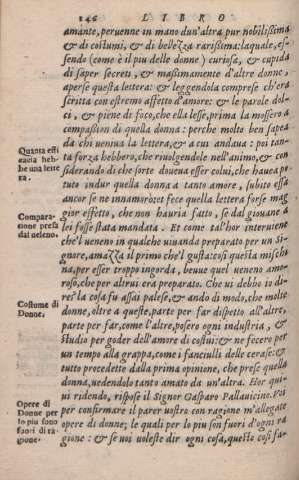 146 LIBRO
amante, peruenne in mano dun'altra pur nobilissima
& di costumi, & di bellezza rarissima: laquale, es-
sendo (come è il piu delle donne) curiosa, & cupida
di saper secreti, & massimamente d'altre donne,
aperse questa lettera: & leggendola comprese ch'era
scritta con estremo affetto d'amore: & le parole dol-
ci, & piene di foco, che ella lesse, prima la mossero a
compassion di quella donna: perche molto ben sapea
da chi ueniua la lettera, & a cui andaua: poi tan-
Quanta effi
cacia heb-
be una lette
ra.
ta forza hebbero, che riuolgendole nell'animo, & con
siderando di che sorte doueua esser colui, che hauea po-
tuto indur quella donna a tanto amore, subito essa
ancor se ne innamorò: et fece quella lettera forse mag
gior effetto, che non hauria fatto, se dal giouane a
Compara-
tione presa
dal ueleno.
lei fosse stata mandata. Et come tal'hor interuiene
che'l ueneno in qualche uiuanda preparato per un Si-
gnore, amazza il primo che'l gusta: cosi questa meschi
na, per esser troppo ingorda, beuue quel ueneno amo-
roso, che per altrui era preparato. Che ui debbo io di-
re? la cosa fu assai palese, & ando di modo, che molte
Costume di
Donne.
donne, oltre a queste, parte per far dispetto all'altre,
parte per far, come l'altre, posero ogni industria, &
studio per goder dell'amore di costui: & ne fecero per
un tempo alla grappa, come i fanciulli delle cerase: &
tutto procedette dalla prima opinione, che prese quella
donna, uedendolo tanto amato da un'altra. Hor qui-
ui ridendo, rispose il Signor Gasparo Pallauicino. Voi
Opere di
Donne per
lo piu sono
fuori di ra
gione.
per confirmare il parer uostro con ragione m'allegate
opere di donne; le quali per lo piu son fuori d'ogni ra
gione: & se uoi uoleste dir ogni cosa, questo cosi fa-